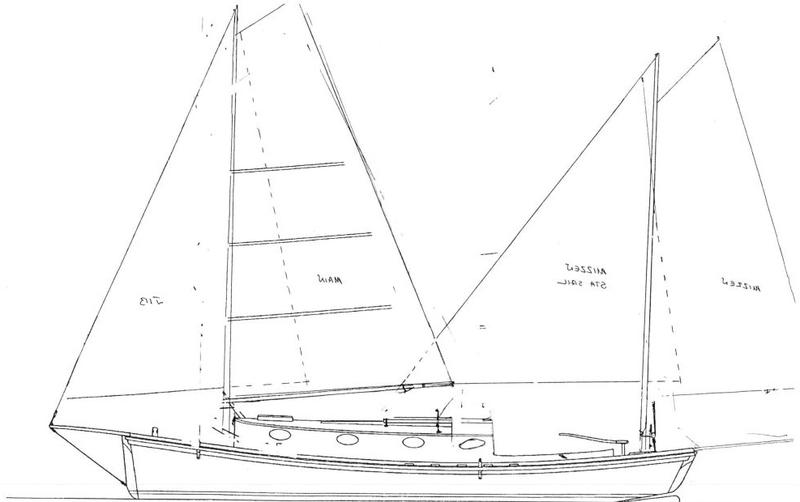 JIB
MAIN
MIZZEN
STA SAIL
MIZZEN